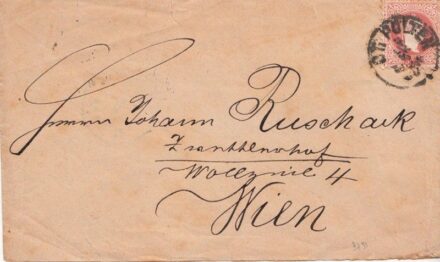 ST. PÖLTEN
Herrn Johann Ruschack
Zwettlerhof
Wollzeile 4
Wien